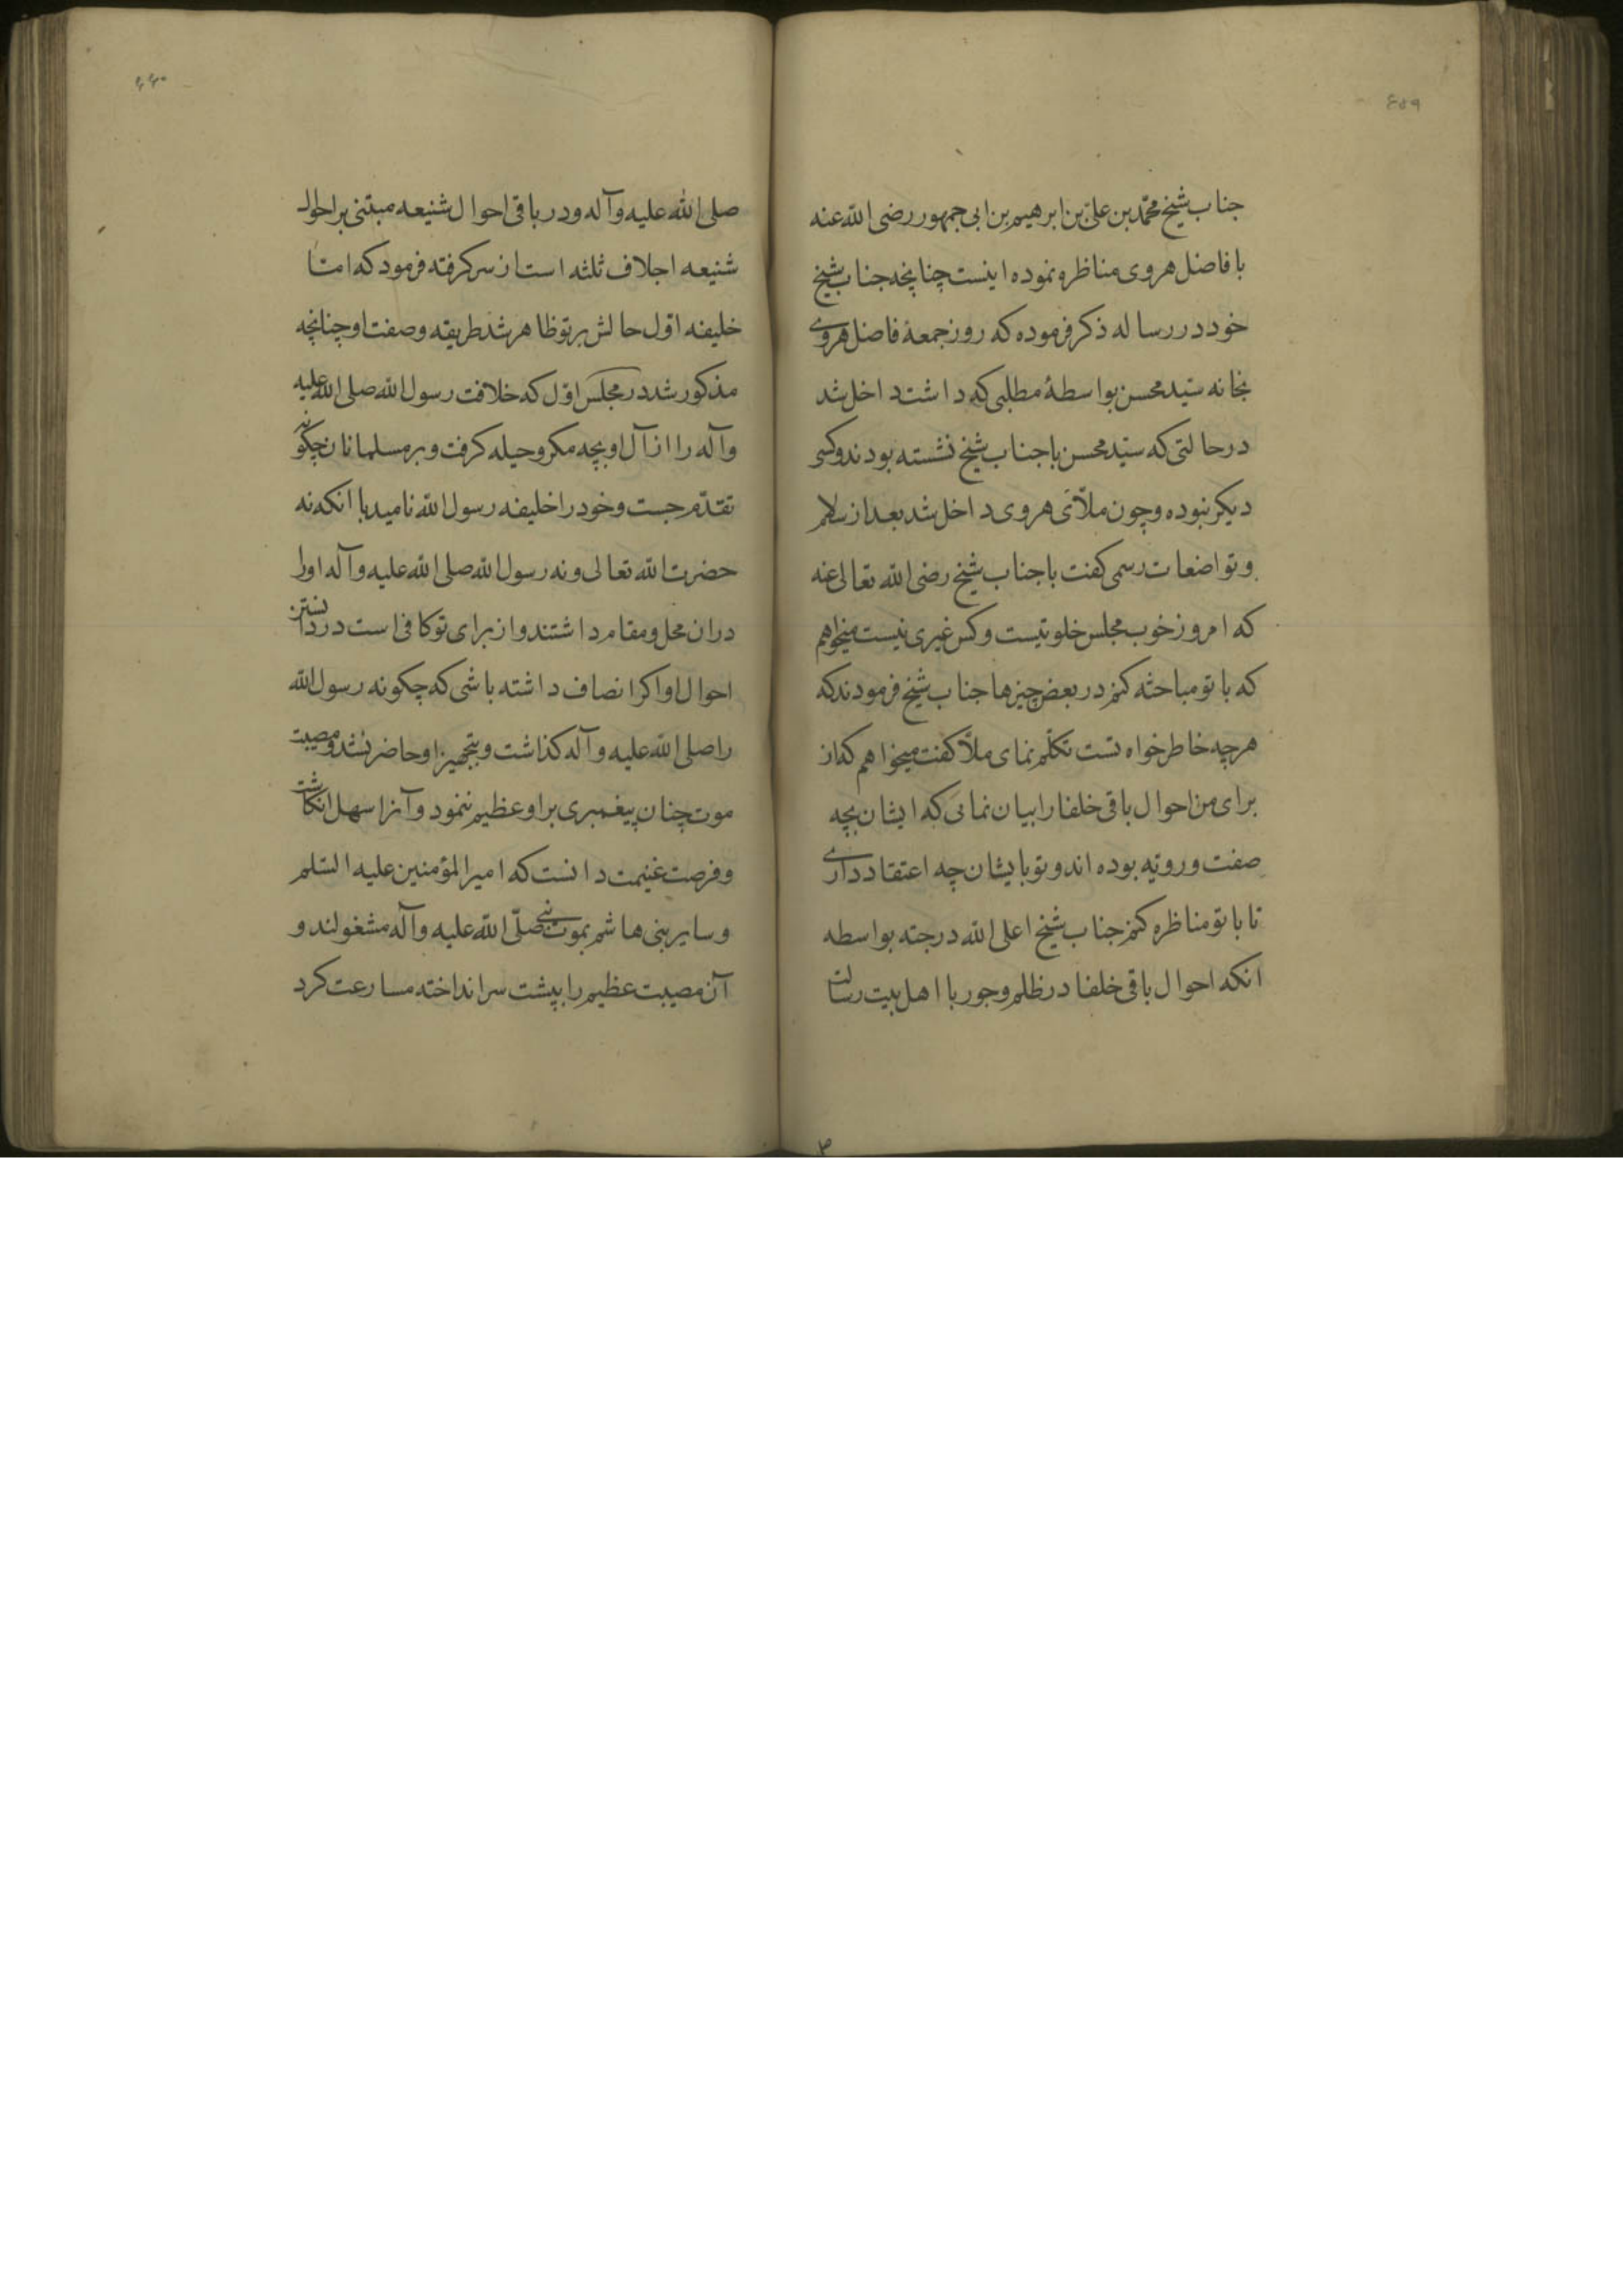 ٤٥٩
جناب شیخ محمّد بن علیّ بن ابرهیم بن ابی جمهور رضی الله عنه
با فاضل هروی مناظره نموده اینست چنانچه جناب شیخ
خود در رساله ذکر فرموده که روز جمعهٔ فاضل هروی
بخانه سیّد محسن بواسطهٔ مطلبی که داشت داخل شد
در حالتی که سیّد محسن با جناب شیخ نشسته بودند و کسی
دیکر نبوده و چون ملّآی هروی داخل شد بعد از سلام
و تواضعات رسمی کفت با جناب شیخ رضی الله تعالی عنه
که امروز خوب مجلس خلوتیست و کس غیری نیست میخواهم
که با تو مباحثه کنم در بعض چیزها جناب شیخ فرمودند که
هرچه خاطر خواه تست تکلّم نمای ملّا کفت میخواهم که از
برای من احوال باقی خلفا را بیان نمائی که ایشان بچه
صفت و رویّه بوده اند و تو بایشان چه اعتقاد داری
تا با تو مناظره کنم جناب شیخ اعلی الله درجته بواسطه
انکه احوال باقی خلفا در ظلم و جور با اهل بیت رسالت
٤٦٠
صلی الله علیه وآله و در باقی احوال شنیعه مبتنی بر احوال
شنیعه اجلاف ثلثه است از سر کرفته فرمود که امّا
خلیفه اوّل حالش بر تو ظاهر شد طریقه و صفت او چنانچه
مذکور شد در مجلس اوّل که خلافت رسول الله صلی الله علیه
وآله را از آل او بچه مکر و حیله کرفت و بر مسلمانان چکونه
تقدّم جست و خود را خلیفه رسول الله نامید با انکه نه
حضرت الله تعالی و نه رسول الله صلی الله علیه وآله او را
دران محل و مقام داشتند و از برای تو کافی است در دانستن
احوال او اکر انصاف داشته باشی که چکونه رسول الله
را صلی الله علیه وآله کذاشت و بتجهیز او حاضر نشد و مصیبت
موت چنان پیغمبری بر او عظیم ننمود و آنرا سهل انکاشت
و فرصت غنیمت دانست که امیر المؤمنین علیه السّلم
و سایر بنی هاشم بموت نبی صلّی الله علیه وآله مشغولند و
آن مصیبت عظیم را بپشت سر انداخته مسارعت کرد